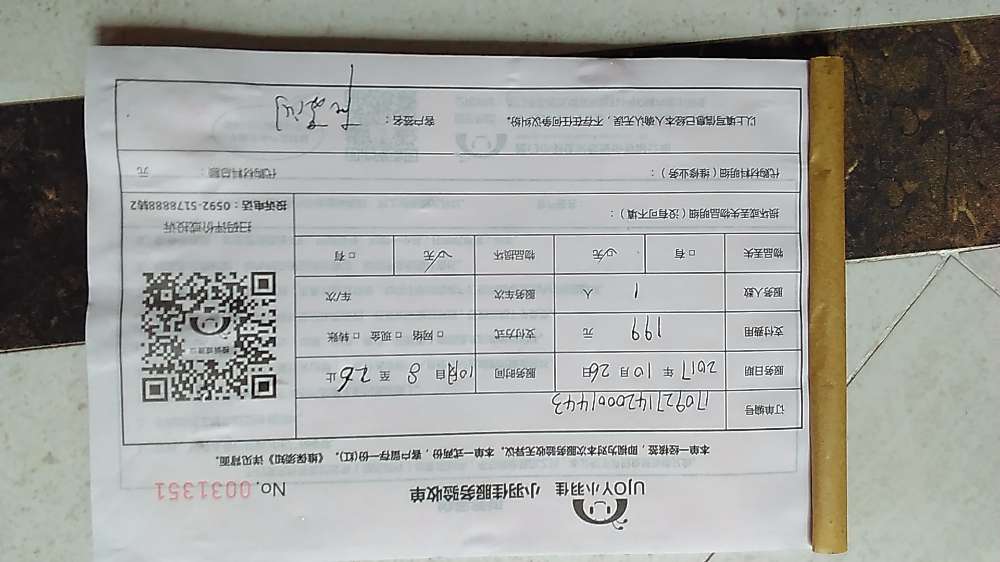 UJOY小羽佳 小羽佳服务验收单 No. 0031351
本单一经核签，即视为对本次服务验收无异议。本单一式两份，客户留存一份(红)。《维保须知》详见背面。
订单编号 1709271420001443
服务日期 2017 年 10 月 26 日 服务时间 自 8 至 26 止
支付费用 199 元 支付方式 □ 网络 □ 现金 □ 转账
服务人数 1 人 服务车次 车/次
物品丢失 □ 有 □ 无 物品损坏 □ 无 □ 有
扫码评价或投诉
投诉电话：0592-5178888转2
损坏或丢失物品明细（没有可不填）：
代购材料明细（维修业务）： 代购材料总额： 元
以上填写信息已经本人确认无误，不存在任何争议纠纷。 客户签名：